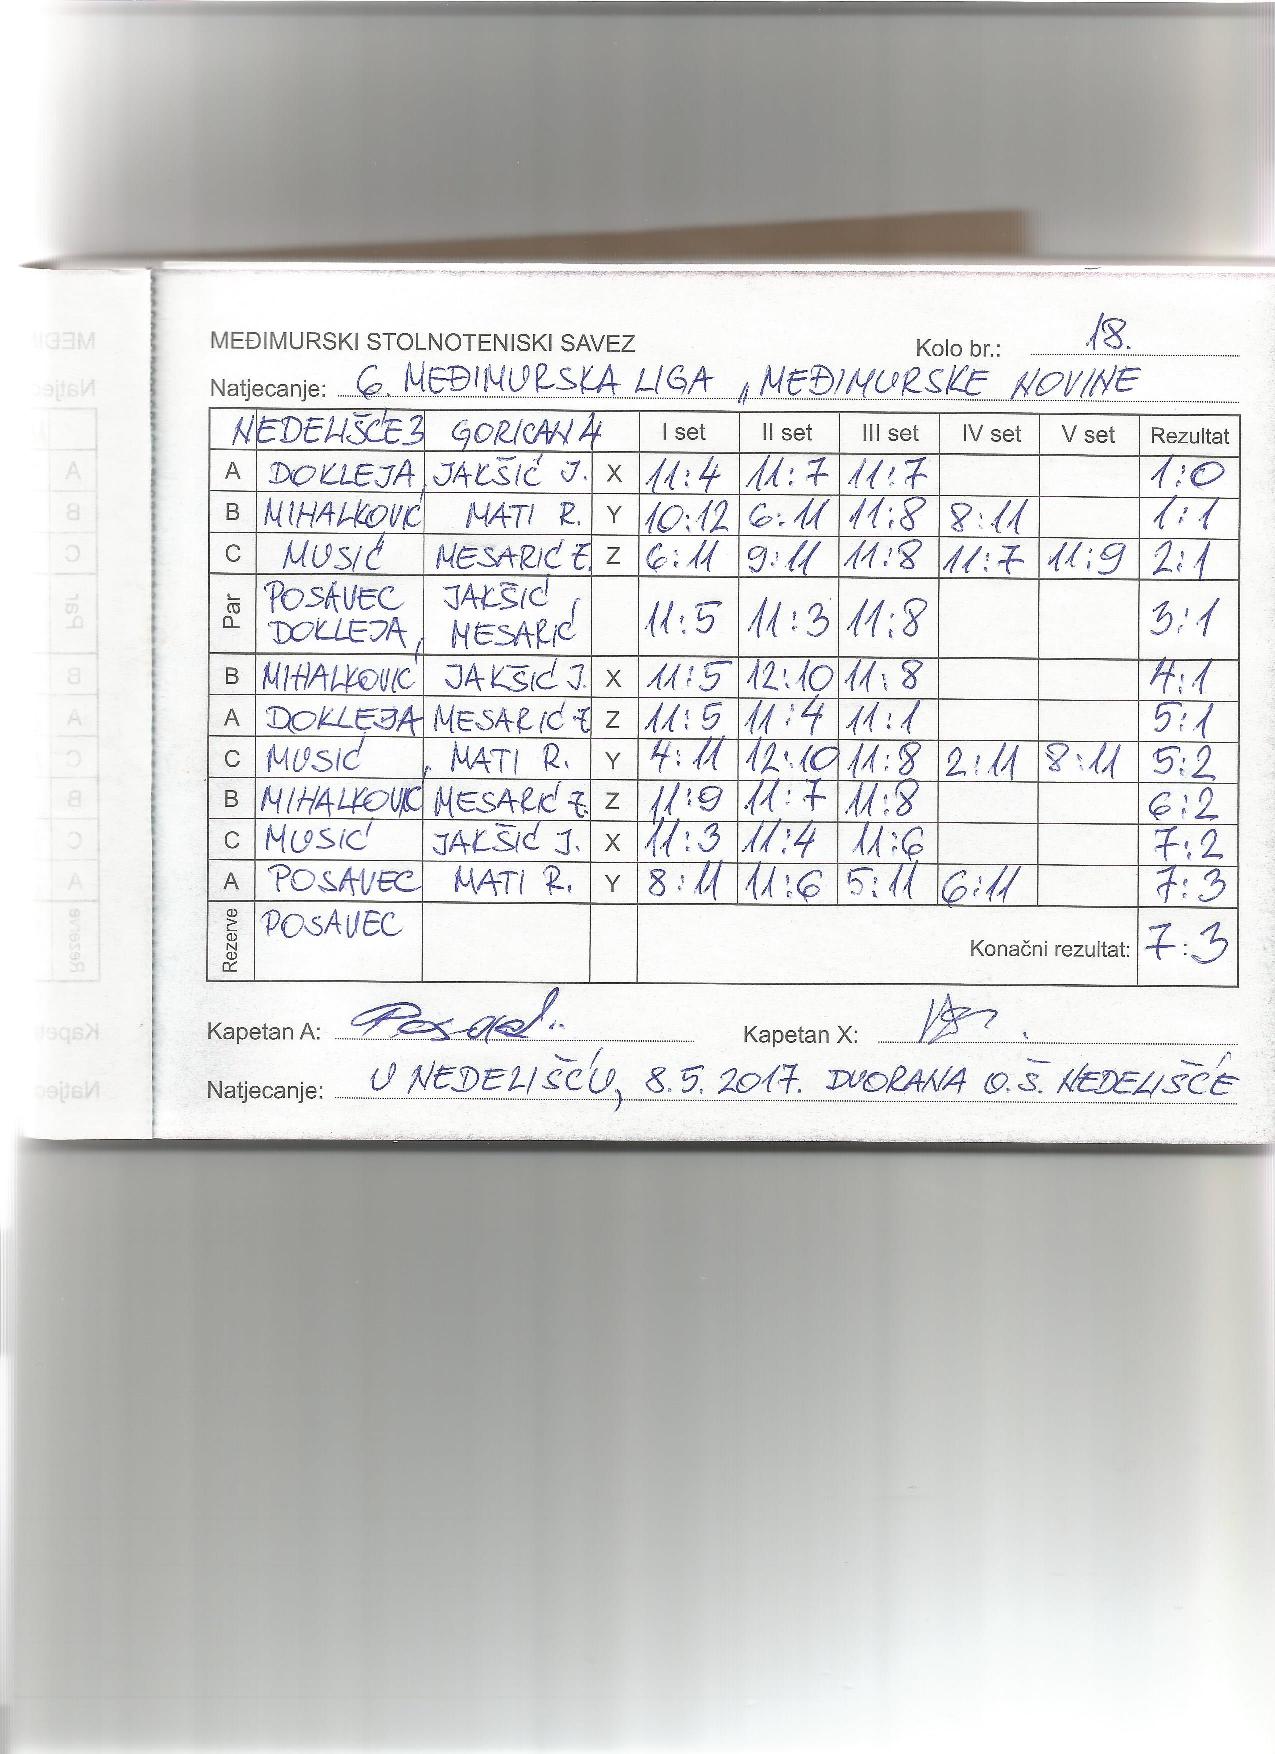 MEĐIMURSKI STOLNOTENISKI SAVEZ
Kolo br.: 18.
Natjecanje: 6. MEĐIMURSKA LIGA „MEĐIMURSKE NOVINE
NEDELIŠĆE 3 GORICAN 4 I set II set III set IV set V set Rezultat
A DOKLEJA JAKŠIĆ J. X 11:4 11:7 11:7 1:0
B MIHALKOVIĆ MATI R. Y 10:12 6:11 11:8 8:11 1:1
C MUSIĆ MESARIĆ Z. Z 6:11 9:11 11:8 11:7 11:9 2:1
Par POSAVEC DOKLEJA JAKŠIĆ MESARIĆ 11:5 11:3 11:8 3:1
B MIHALKOVIĆ JAKŠIĆ J. X 11:5 12:10 11:8 4:1
A DOKLEJA MESARIĆ Z Z 11:5 11:4 11:1 5:1
C MUSIĆ MATI R. Y 4:11 12:10 11:8 2:11 8:11 5:2
B MIHALKOVIĆ MESARIĆ Z. Z 11:9 11:7 11:8 6:2
C MUSIĆ JAKŠIĆ J. X 11:3 11:4 11:6 7:2
A POSAVEC MATI R. Y 8:11 11:6 5:11 6:11 7:3
Rezerve POSAVEC Konačni rezultat: 7:3
Kapetan A: Kapetan X:
Natjecanje: U NEDELIŠĆU, 8.5.2017. DVORANA O.Š. NEDELIŠĆE